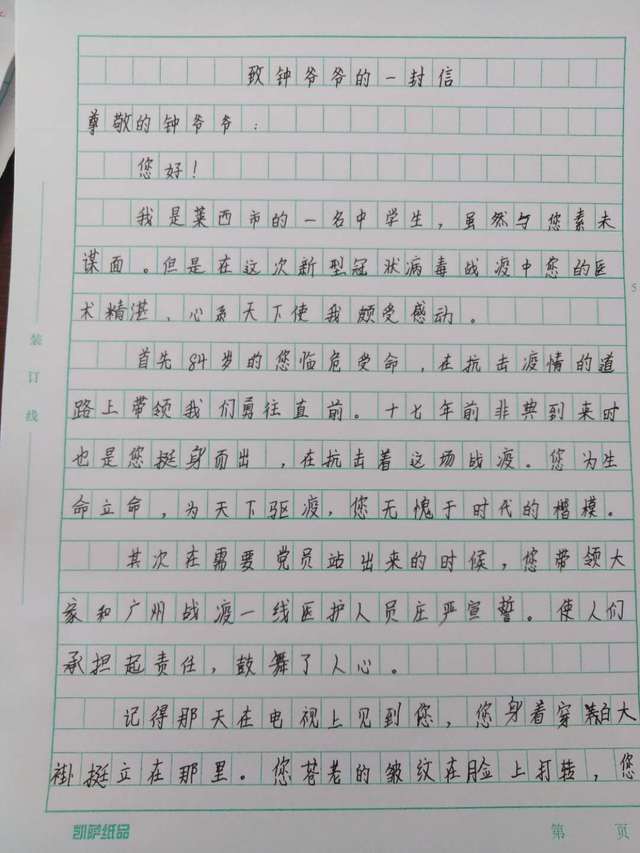 致钟爷爷的一封信
尊敬的钟爷爷：
您好！
我是莱西市的一名中学生，虽然与您素未
谋面。但是在这次新型冠状病毒战疫中您的医
术精湛、心系天下使我颇受感动。
首先84岁的您临危受命，在抗击疫情的道
路上带领我们勇往直前。十七年前非典到来时
也是您挺身而出，在抗击着这场战疫。您为生
命立命，为天下驱疫，您无愧于时代的楷模。
其次在需要党员站出来的时候，您带领大
家和广州战疫一线医护人员庄严宣誓。使人们
承担起责任，鼓舞了人心。
记得那天在电视上见到您，您身着穿白大
褂挺立在那里。您苍老的皱纹在脸上打转，您
装订线
5
凯萨纸品
第 页